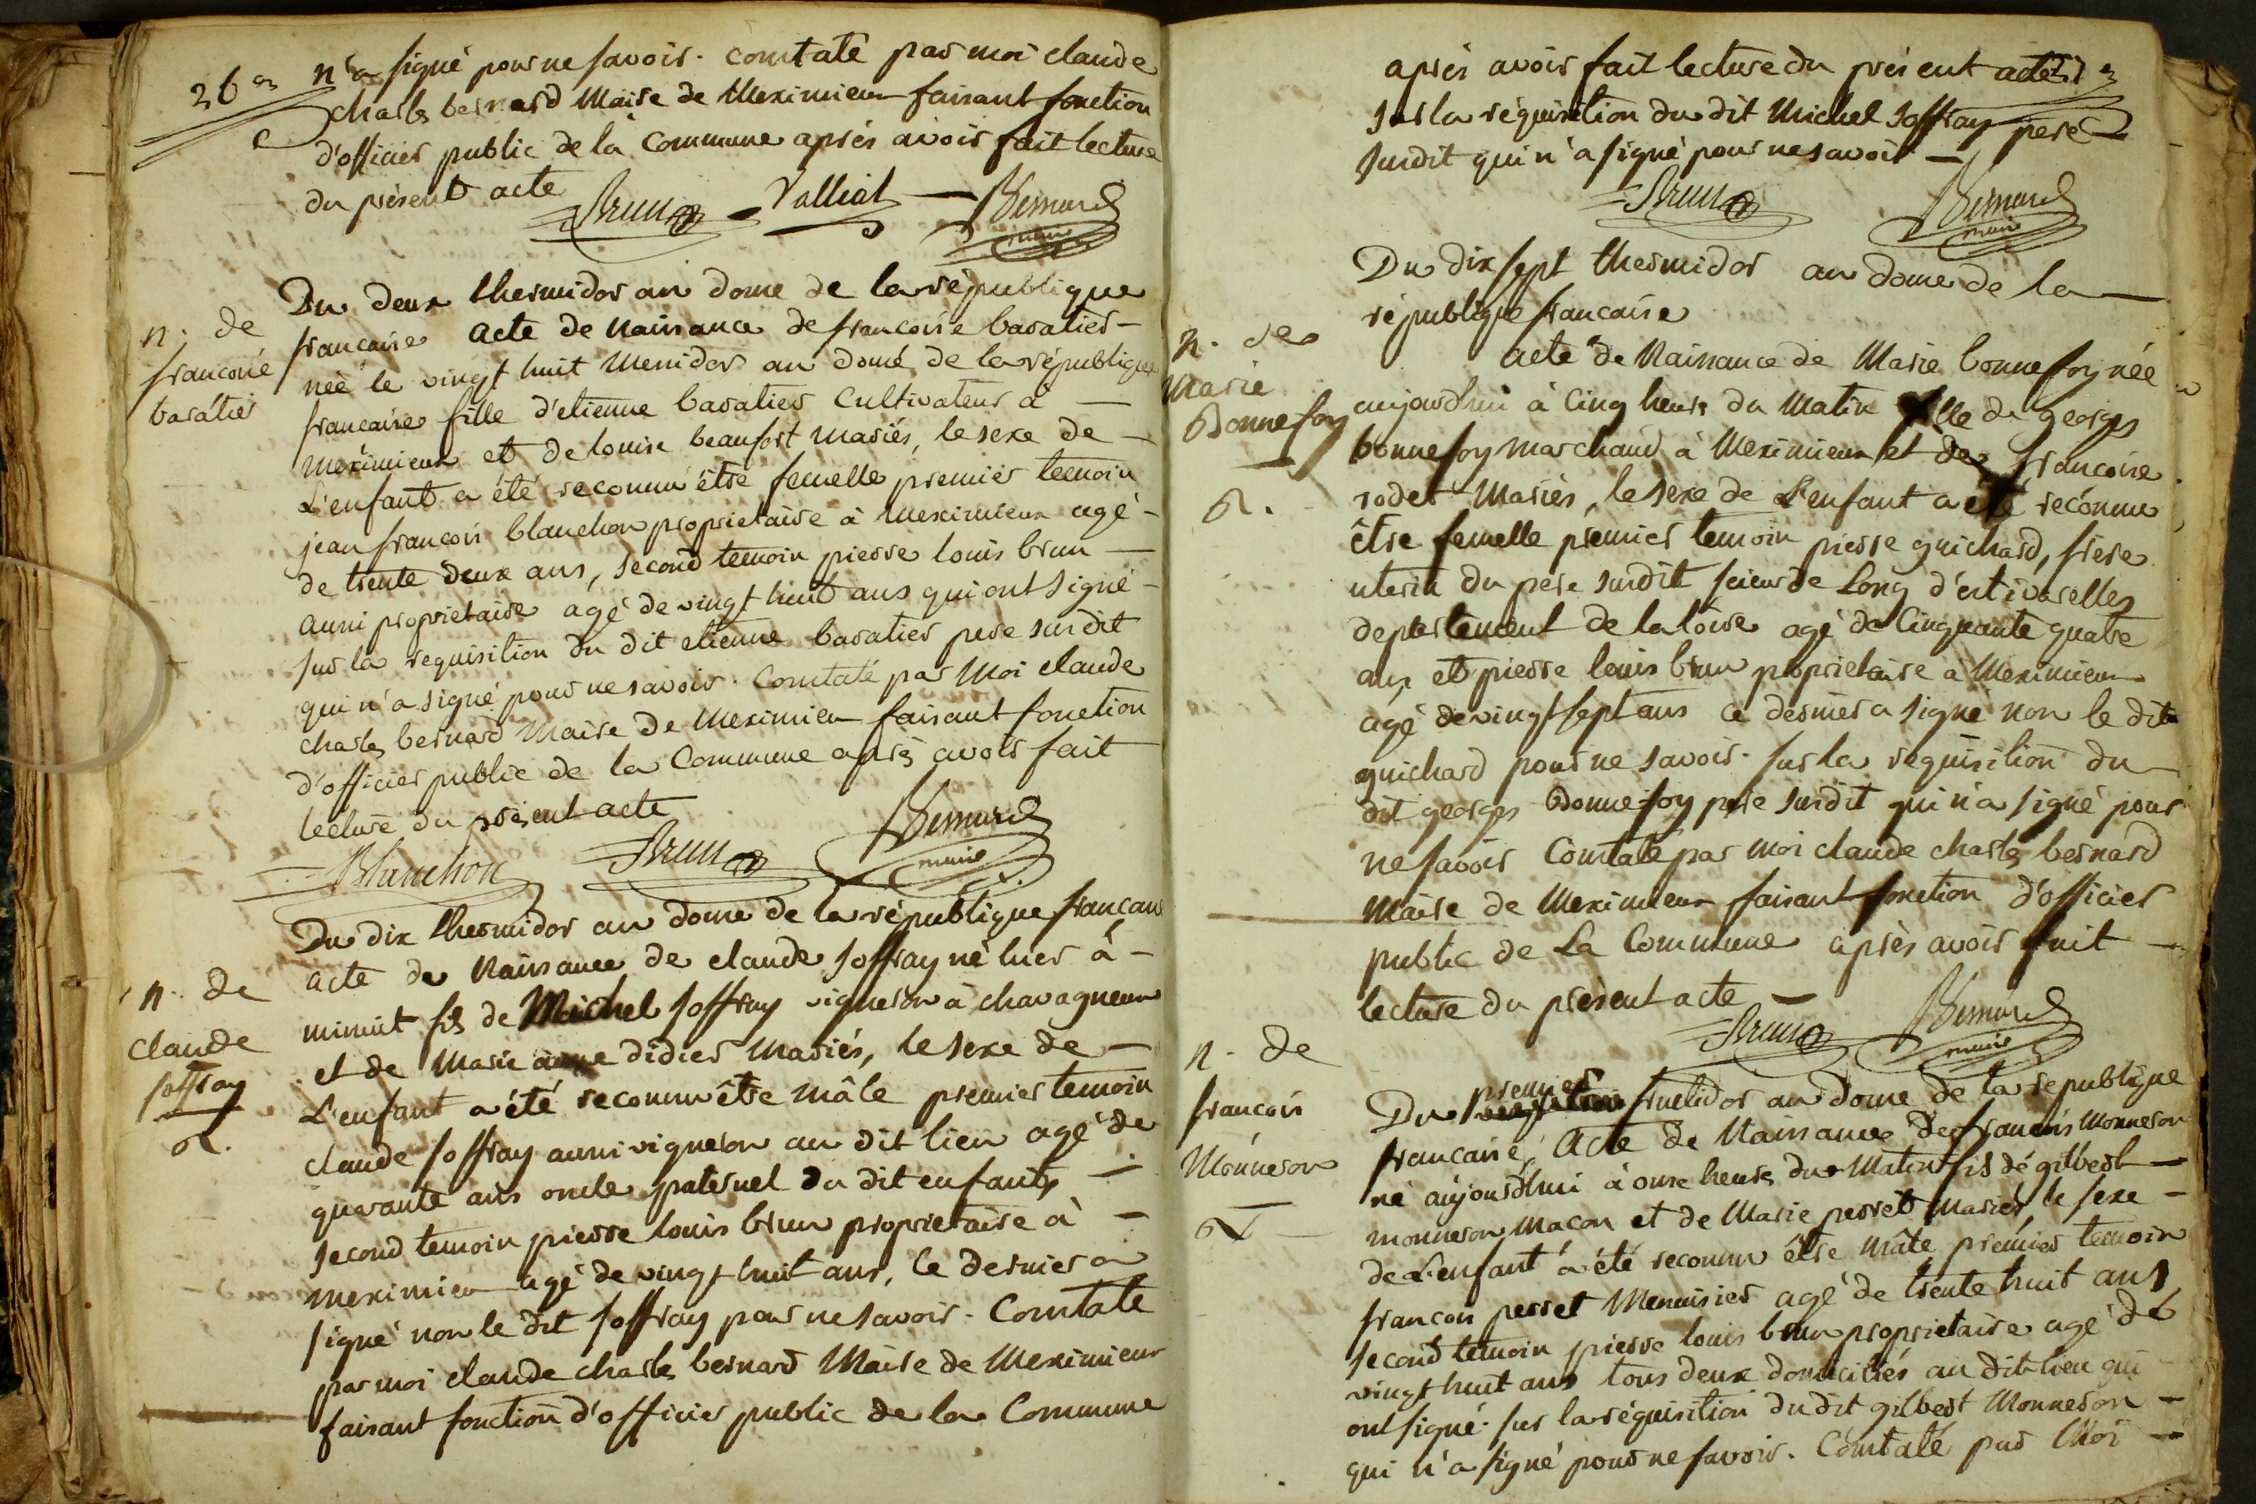 26
n'a signé pour ne savoir. Constaté par moi claude
charles bernard Maire de Meximieux faisant fonction
d'officier public de la Commune après avoir fait lecture
du présent acte
Brun Valliat Bernard
maire
n. de
francoise
baratier
Du deux thermidor an douze de la république
francaise acte de Naissance de francoise baratier -
née le vingt huit Messidor an douze de la république
francaise fille d'etienne baratier Cultivateur à -
meximieux et de louise beaufort mariés, le sexe de -
L'enfant a été reconnu être femelle premier temoin
jean francois blanchon proprietaire à Meximieux agé -
de trente deux ans, second temoin pierre louis brun -
aussi proprietaire agé de vingt huit ans qui ont signé -
sur la requisition du dit etienne baratier pere susdit
qui n'a signé pour ne savoir. Constaté par Moi claude
charles bernard Maire de Meximieux faisant fonction
d'officier public de la Commune après avoir fait
lecture du présent acte
Blanchon Brun Bernard
maire
n. de
claude
soffray
Du dix thermidor an douze de la république francaise
acte de Naissance de claude soffray né hier à -
minuit fils de Michel soffray vigneron à chavagneux
et de Marie anne didier Mariés, le sexe de -
L'enfant a été reconnu être mâle premier temoin
claude soffray aussi vigneron au dit lieu agé de
quarante ans oncle paternel du dit enfant, -
second temoin pierre louis brun proprietaire à -
meximieux agé de vingt huit ans, Ce dernier a
signé non le dit soffray pour ne savoir. Constaté
par moi claude charles bernard Maire de Meximieux
faisant fonction d'officier public de la Commune
27
après avoir fait lecture du présent acte
sur la réquisition du dit Michel soffray pere
susdit qui n'a signé pour ne savoir -
Brun Bernard
maire
n. de
Marie
Bonnefoy
Du dix sept thermidor an douze de la -
république francaise
acte de Naissance de Marie bonnefoy née
aujourdhui à Cinq heures du Matin fille de georges
bonnefoy marchand à Meximieux et de francoise
rodet Mariés, le sexe de L'enfant a été reconnu
être femelle premier temoin pierre guichard, frere
uterin du pere susdit scieur de Long d'estivareilles
departement de la loire agé de Cinquante quatre
ans et pierre louis brun proprietaire à Meximieux
agé de vingt sept ans ce dernier a signé non le dit
guichard pour ne savoir. sur la requisition du -
dit georges Bonnefoy pere susdit qui n'a signé pour
ne savoir Constaté par moi claude charles bernard
Maire de Meximieux faisant fonction d'officier
public de La Commune après avoir fait -
lecture du présent acte -
Brun Bernard
maire
n. de
francois
Monneron
premier
Du fructidor an douze de la republique
francaise, Acte de Naissance de francois Monneron
né aujourdhui à onze heures du Matin fils de gilbert -
monneron Macon et de Marie perret Mariés, le sexe -
de L'enfant a été reconnu être mâle premier temoin
francois perret Menuisier agé de trente huit ans,
second temoin pierre louis brun proprietaire agé de
vingt huit ans tous deux domiciliés au dit lieu qui
ont signé. sur la réquisition du dit gilbert Monneron -
qui n'a signé pour ne savoir. Constaté par Moi -